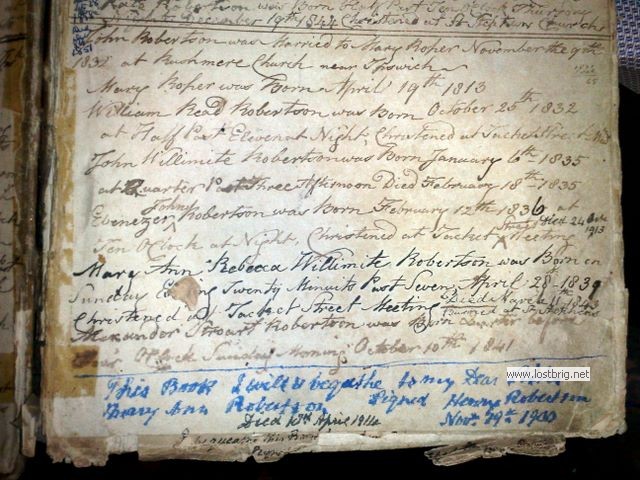 Kate Robertson was Born Half Past Ten O'Clock Thursday
Night December 19th 1844 Christened at St Stephens Church
John Robertson was Married to Mary Roper November the 9th
1832 at Rushmere Church near Ipswich
Mary Roper was Born April 19th 1813
William Read Robertson was Born October 25th 1832
at Half Past Eleven at Night, Christened at Tacket
John Willimite Robertson was Born January 6th 1835
at Quarter Past Three Afternoon Died February 18th 1835
Ebenezer John Robertson was Born February 12th 1836 at
Ten O'Clock at Night, Christened at Tacket Street Meeting Died 24 1913
Mary Ann Rebecca Willimite Robertson was Born on
Sunday Twenty Minuits Past Seven, April 28 1839
Christened at Tacket Street Meeting Died 1843 Buried at St Stephens
Alexander Stuart Robertson was Born Quarter before
O'Clock Sunday Morning October 10th 1841
www.lostbrig.net
This Book I will & beqathe to my Dear
Mary Ann Robertson Signed Henry Robertson
Died April 1914 Nov. 29th